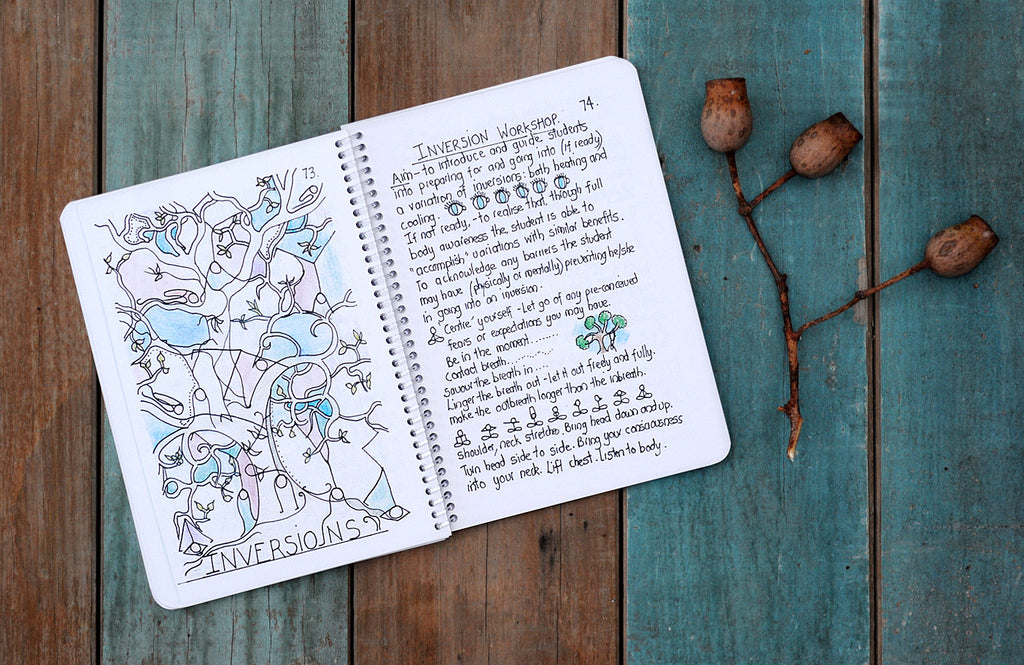 73.
INVERSIONS
74.
INVERSION WORKSHOP.
Aim - to introduce and guide students
into preparing for and going into (if ready)
a variation of inversions: both heating and
cooling.
If not ready, - to realise that through full
body awareness the student is able to
"accomplish" variations with similar benefits.
To acknowledge any barriers the student
may have (physically or mentally) preventing he/she
in going into an inversion.
Centre yourself - Let go of any pre-conceived
fears or expectations you may have.
Be in the moment........
Contact breath..........
Savour the breath in....
Linger the breath out - let it out freely and fully.
make the outbreath longer than the inbreath.
Shoulder, neck stretches. Bring head down and up.
Turn head side to side. Bring your consciousness
into your neck. Lift chest. Listen to body.